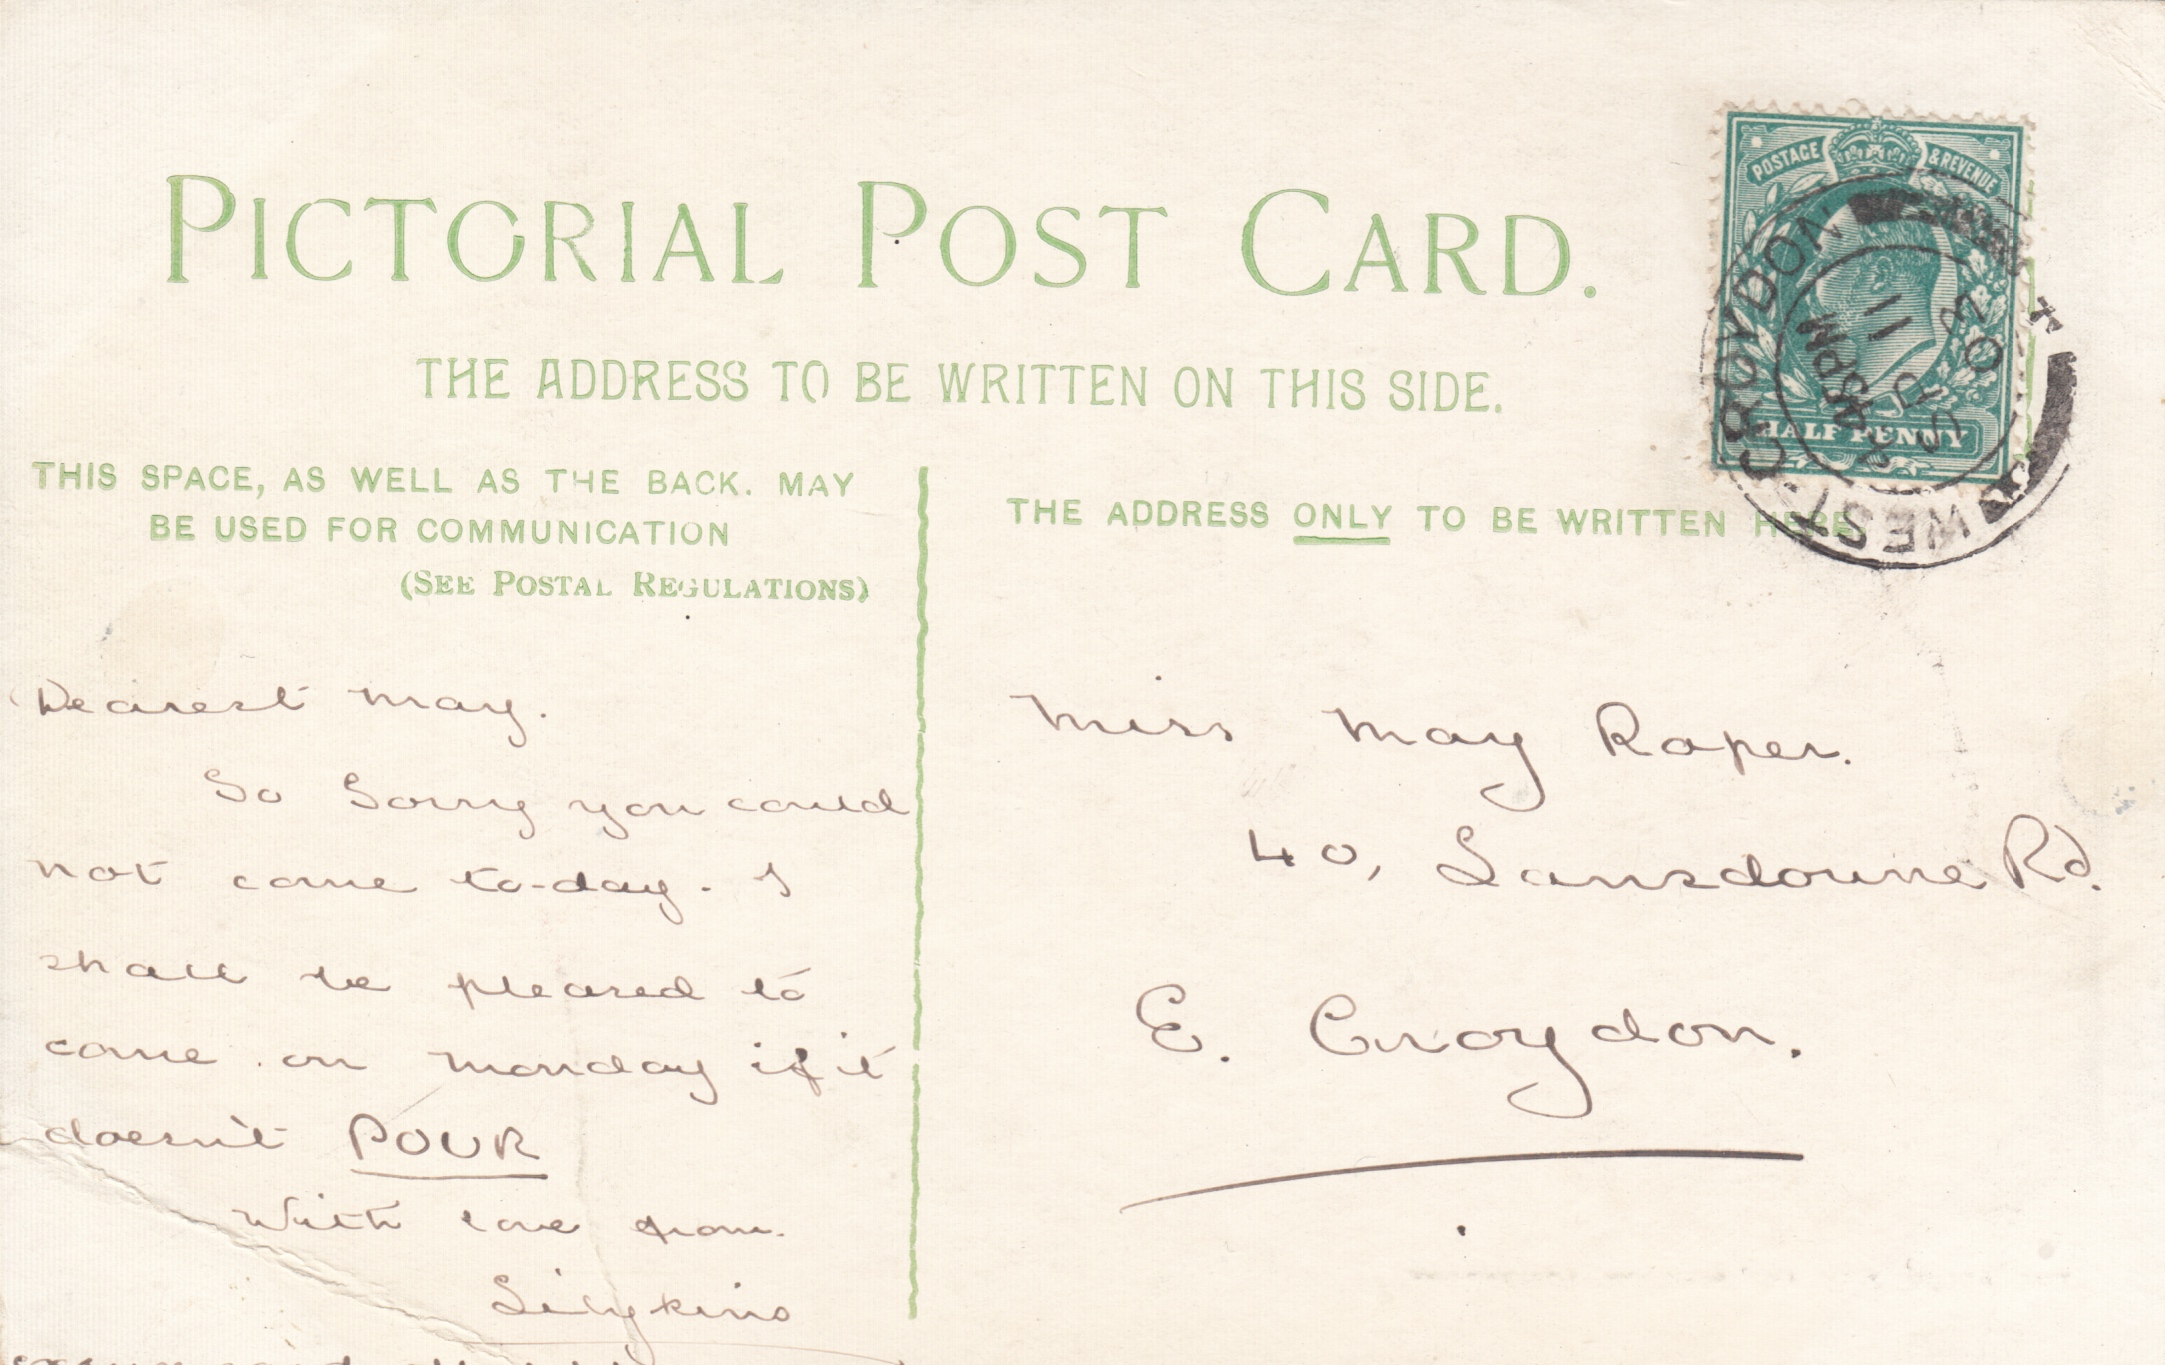 PICTORIAL POST CARD.
THE ADDRESS TO BE WRITTEN ON THIS SIDE.
THIS SPACE, AS WELL AS THE BACK. MAY
BE USED FOR COMMUNICATION
(SEE POSTAL REGULATIONS)
THE ADDRESS ONLY TO BE WRITTEN HERE
POSTAGE & REVENUE
HALF PENNY
WEST CROYDON
45 PM
11
03
Dearest May.
So Sorry you could
not come to-day. I
shall be pleased to
come on Monday if it
doesn't POUR
With love from.
Lilykins
Miss May Raper.
40, Lansdowne Rd.
E. Croydon.